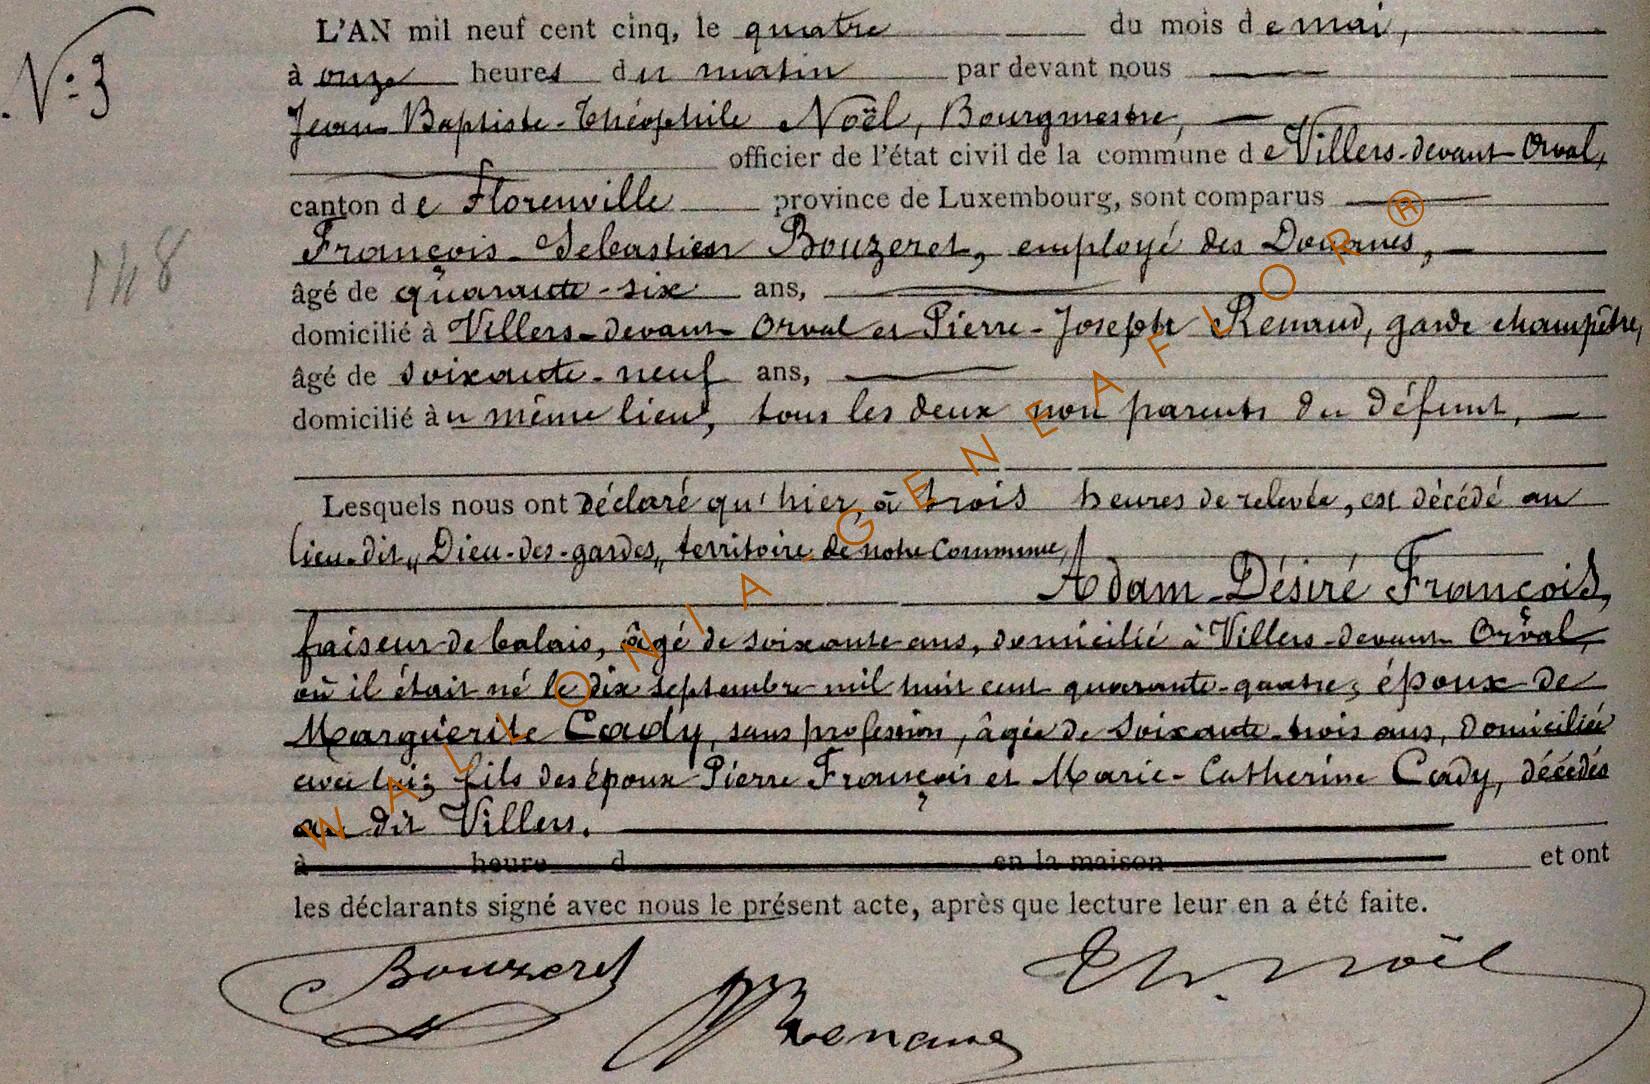 N° 3
148
L'AN mil neuf cent cinq, le quatre du mois de mai,
à onze heures du matin par devant nous
Jean Baptiste-Théophile Noël, Bourgmestre,
officier de l'état civil de la commune de Villers-devant-Orval,
canton de Florenville province de Luxembourg, sont comparus
François-Sebastien Bouzeret, employé des Douanes,
âgé de quarante-six ans,
domicilié à Villers-devant-Orval et Pierre-Joseph Renaud, garde champêtre,
âgé de soixante-neuf ans,
domicilié au même lieu, tous les deux non parents du défunt,
Lesquels nous ont déclaré qu'hier, à trois heures de relevée, est décédé au
lieu-dit „Dieu-des-gardes„ territoire de notre Commune,
Adam-Désiré François,
faiseur de balais, âgé de soixante ans, domicilié à Villers-devant-Orval,
où il était né le dix septembre mil huit cent quarante-quatre; époux de
Marguerite Cady, sans profession, âgée de soixante-trois ans, domiciliée
avec lui; fils des époux Pierre François et Marie-Catherine Cady, décédés
au dit Villers.
à heure d en la maison et ont
les déclarants signé avec nous le présent acte, après que lecture leur en a été faite.
Bouzeret
Th. Noël
Renaud
WALLONIA-GENEAFLOR®